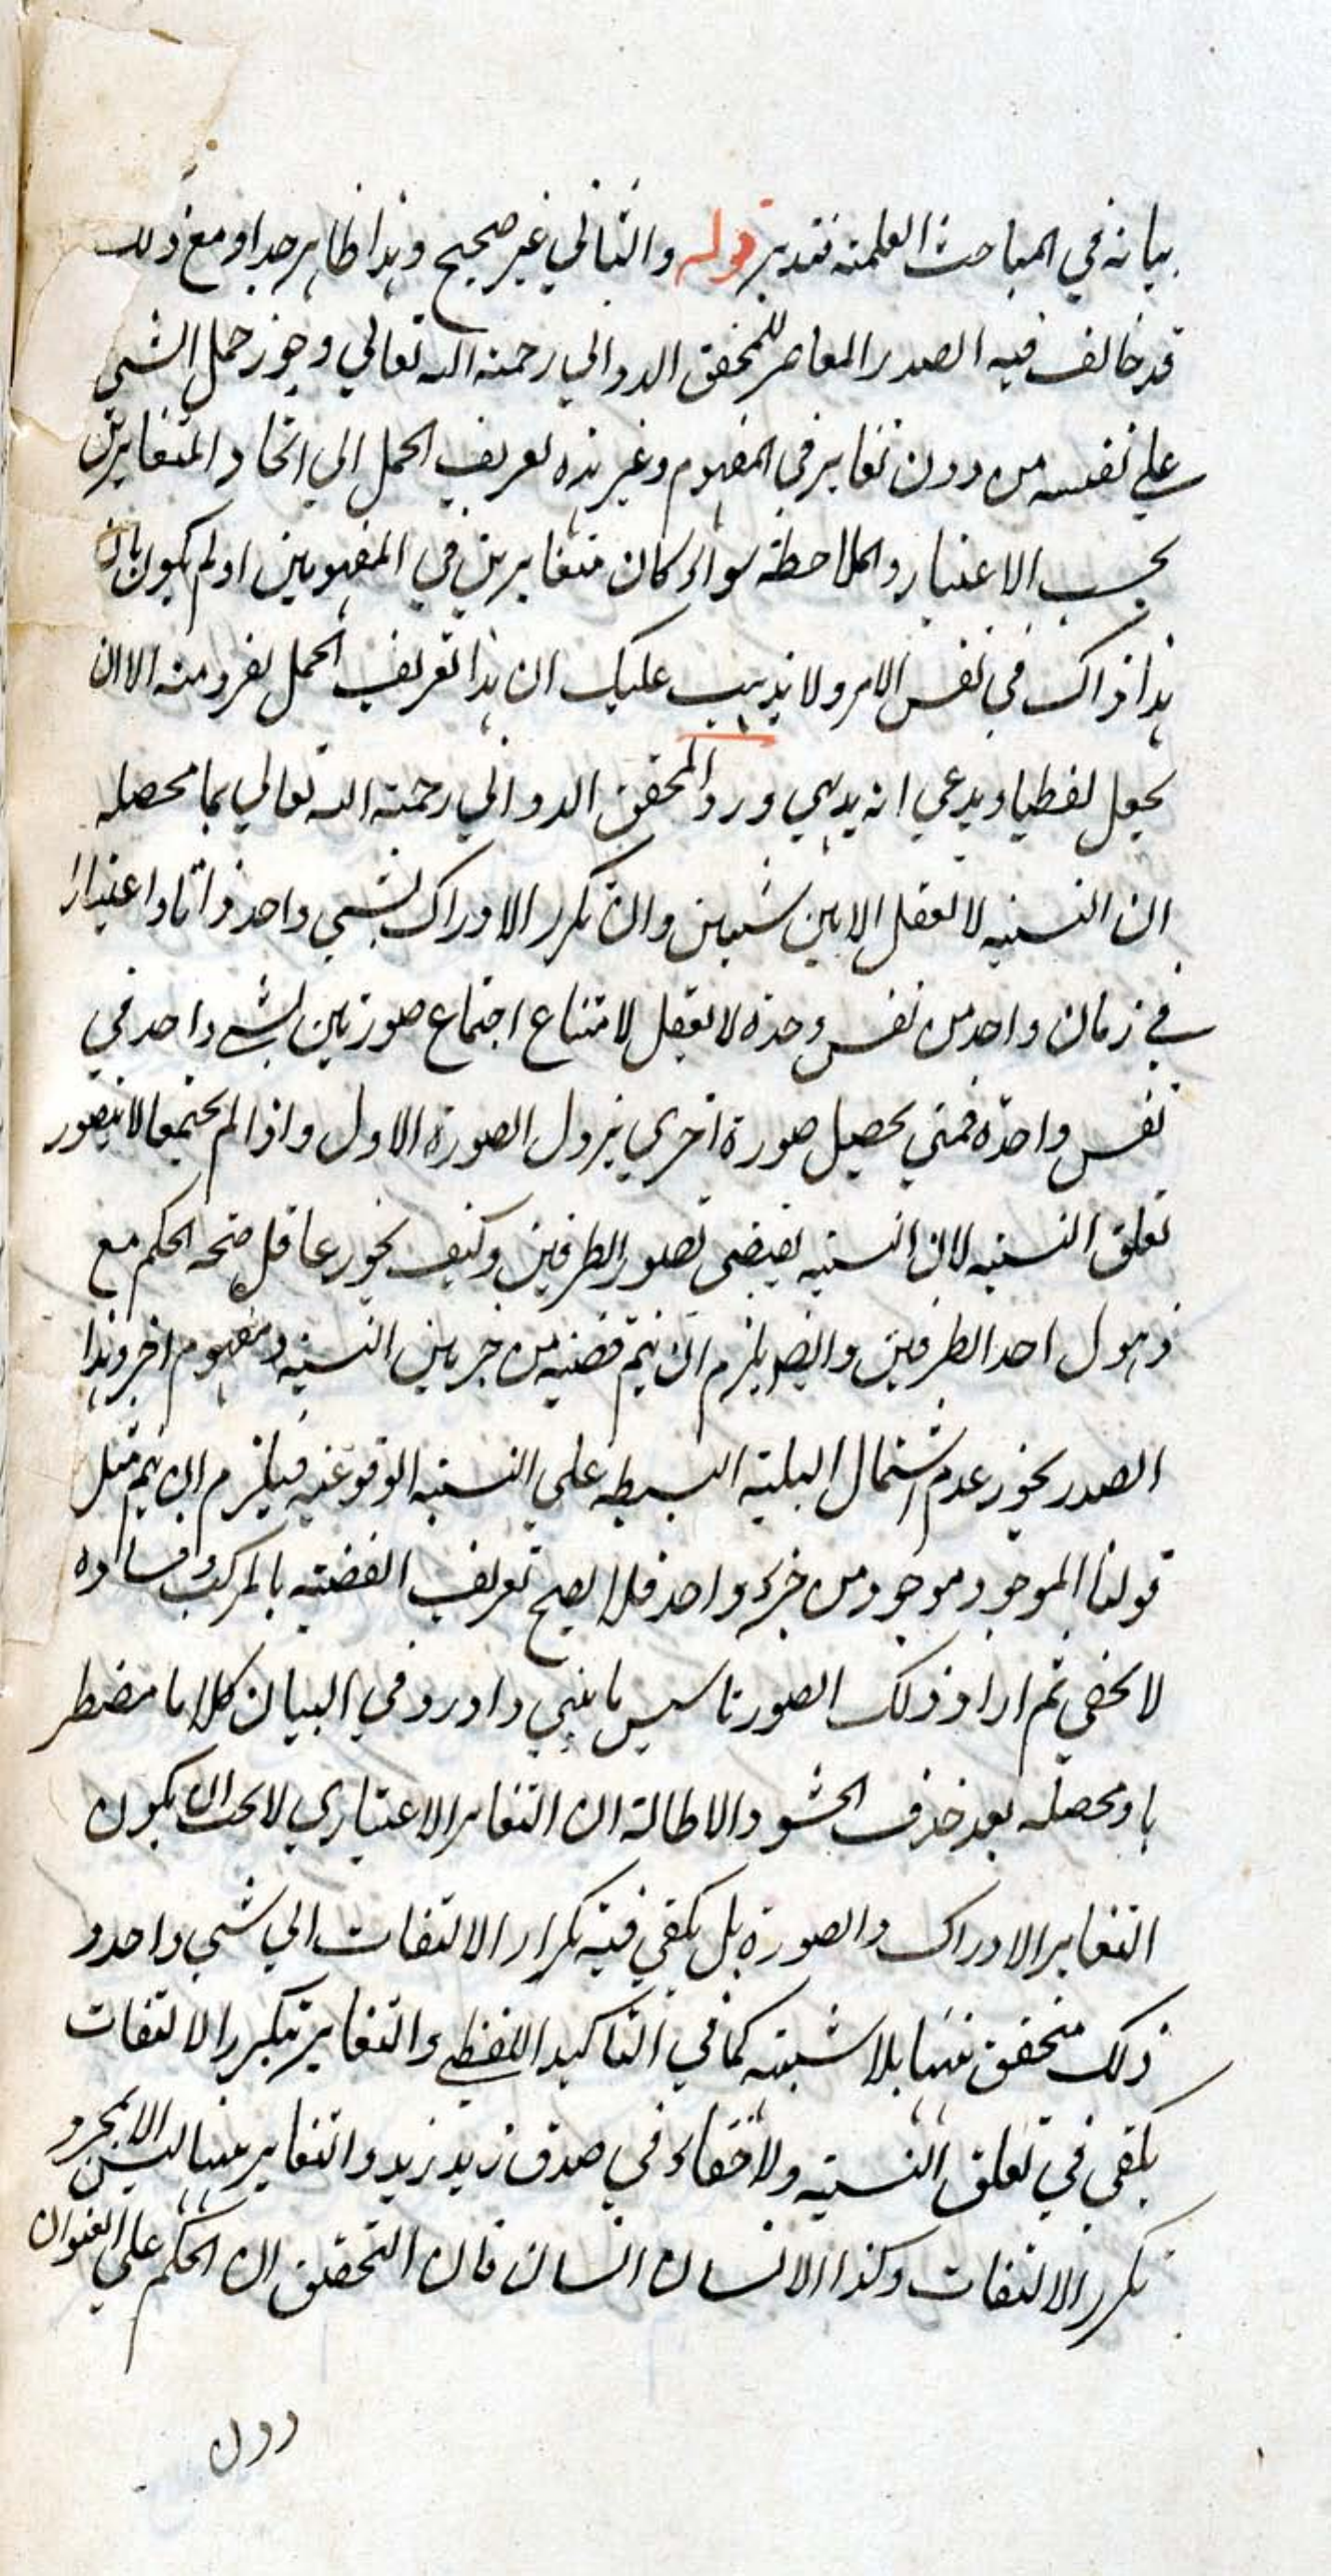 بيانه في المباحث العلمية فتدبر قوله والثاني غير صحيح وهذا ظاهر جدا ومع ذلك
قد خالف فيه الصدر المعاصر للمحقق الدواني رحمة الله تعالي وجوز حمل الشيء
علي نفسه من دون تغاير في المفهوم وغير هذه تعريف الحمل الي اتحاد المتغايرين
بحسب الاعتبار والملاحظة سواء كان متغايرين في المفهومين او لم يكون بان
هذا ذاك في نفس الامر ولا يذهب عليك ان هذا تعريف الحمل بفرد منه الا ان
يجعل لفظيا ويدعي انه بديهي ورد المحقق الدواني رحمة الله تعالي بما محصله
ان النسبة لا تعقل الا بين شيئين وان تكرر الادراك لشيء واحد ذاتا واعتبارا
في زمان واحد من نفس وحدة لا تعقل لامتناع اجتماع صورتين لشيء واحد في
نفس واحدة فمتي يحصل صورة اخري يزول الصورة الاول واذا لم يجتمعا لا يتصور
تعلق النسبة لان النسبة يقتضي تصور الطرفين وكيف يجوز عاقل صحة الحكم مع
ذهول احد الطرفين وايضا يلزم ان يتم قضية من جزيين النسبة ومفهوم اخر وهذا
الصدر يجوز عدم اشتمال الهلية البسيطة علي النسبة الوقوعية فيلزم ان يتم مثل
قولنا الموجود موجود من جزء واحد فلا يصح تعريف القضية بالمركب وفساده
لا يخفي ثم اراد ذلك الصدر تاسيس ما بني واورد في البيان كلاما مضطر
با ومحصله بعد حذف الحشو والاطالة ان التغاير الاعتباري لا يجب ان يكون
التغاير الادراك والصورة بل يكفي فيه تكرار الالتفات الي شيء واحد و
ذلك متحقق ههنا بلا شبهة كما في التاكيد اللفظي والتغاير بتكرر الالتفات
يكفي في تعلق النسبة ولا خفاء في صدق زيد زيد والتغاير ههنا ليس الا بمجرد
تكرر الالتفات وكذا الانسان انسان فان التحقيق ان الحكم علي العنوان
دون